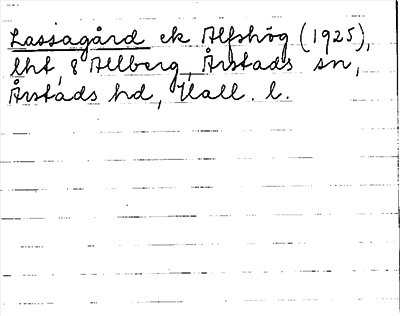 Lassagård ek Alfshög (1925),
lht, 8 Allberg, Årstads sn,
Årstads hd, Hall. l.